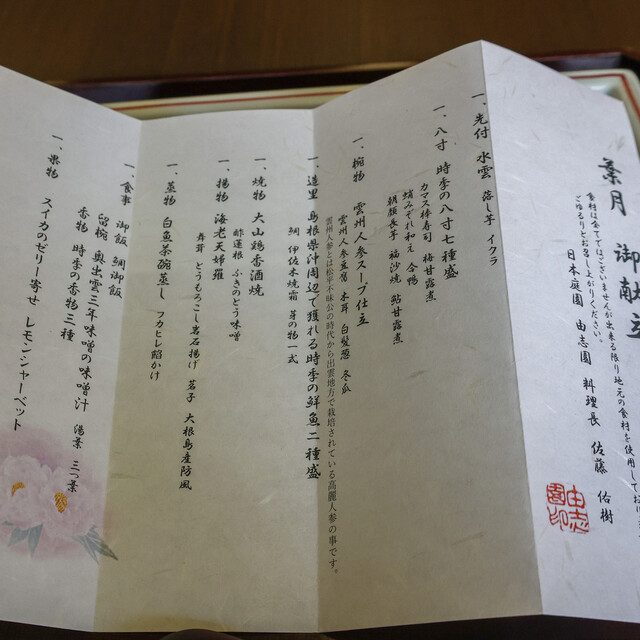 葉月 御献立
食材は全てではございませんが出来る限り地元の食材を使用しており
ごゆるりとお召し上がりください。
日本庭園 由志園 料理長 佐藤 佑樹
由志園印
一、先付 水雲 落し芋 イクラ
一、八寸 時季の八寸七種盛
カマス棒寿司 梅甘露煮
蛸みぞれ和え 合鴨
朝顔長芋 福沙焼 鮎甘露煮
一、椀物 雲州人参スープ仕立
雲州人参豆腐 木茸 白髪葱 冬瓜
雲州人参とは松平不昧公の時代から出雲地方で栽培されている高麗人参の事です。
一、造里 島根県沖周辺で獲れる時季の鮮魚二種盛
鯛 伊佐木焼霜 芽の物一式
一、焼物 大山鶏香酒焼
酢蓮根 ふきのとう味噌
一、揚物 海老天婦羅
舞茸 とうもろこし岩石揚げ 茗子 大根島産防風
一、蒸物 白魚茶碗蒸し フカヒレ餡かけ
一、食事 御飯 鯛御飯
留椀 奥出雲三年味噌の味噌汁 湯葉 三つ葉
香物 時季の香物三種
一、果物 スイカのゼリー寄せ レモンシャーベット